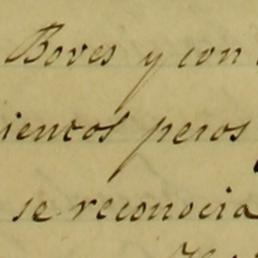 Boves y con
ientos peros
se reconocia